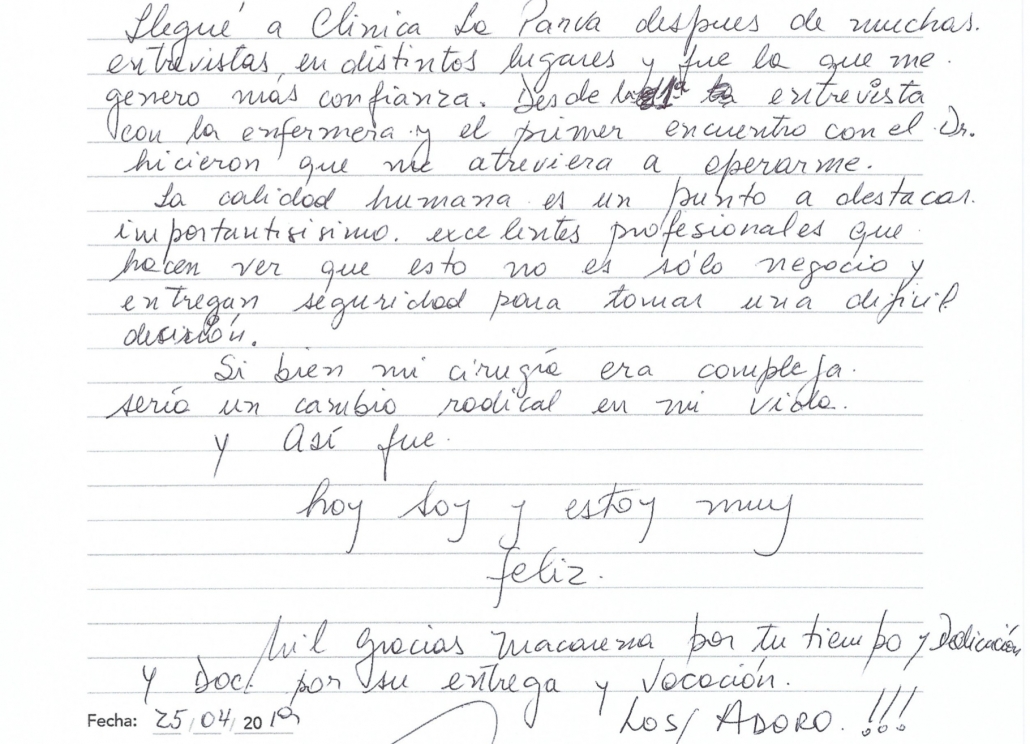 Llegué a Clinica La Parva despues de muchas.
entrevistas en distintos lugares y fue la que me.
genero más confianza. Desde la 1ª entrevista
con la enfermera y el primer encuentro con el Dr.
hicieron que me atreviera a operarme.
La calidad humana es un punto a destacar.
importantisisimo. excelentes profesionales que
hacen ver que esto no es sólo negocio y
entregan seguridad para tomar una dificil
desición.
Si bien mi cirugía era compleja.
sería un cambio radical en mi vida.
y Así fue.
hoy soy y estoy muy
feliz.
Mil gracias Macarena por tu tiempo y Dedicación
y Doc. por su entrega y vocación.
Fecha: 25/04/2019 Los/ ADORO. !!!